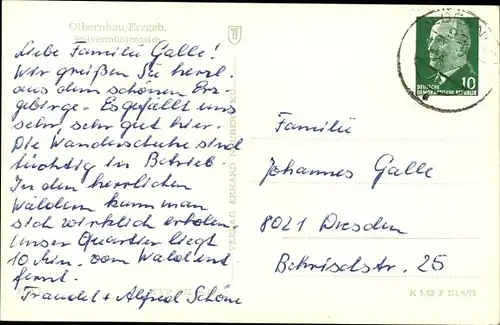 Olbernhau/Erzgeb.
Pulvermühlenteich
Liebe Familie Galle!
Wir grüßen Sie herzl.
aus dem schönen Erz-
gebirge. Es gefällt uns
sehr, sehr gut hier.
Die Wanderschuhe sind
tüchtig in Betrieb.
In den herrlichen
Wäldern kann man
sich wirklich erholen.
Unser Quartier liegt
10 Min. vom Wald ent
fernt.
Traudel + Alfred Schöne
VERLAG ERHARD NEUBERT
10
DEUTSCHE
DEMOKRATISCHE REPUBLIK
Familie
Johannes Galle
8021 Dresden
Behrischstr. 25